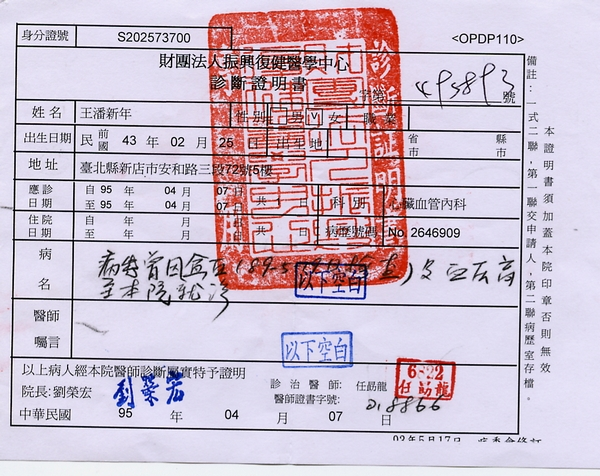 身分證號 S202573700 <OPDP110>
財團法人振興復健醫學中心
診斷證明書
字第 493893 號
姓名 王潘新年 性別 男 女 職業
出生日期 民 前 國 43 年 02 月 25 日 出生地 省 市 縣 市
地址 臺北縣新店市安和路三段72號5樓
應診 自 95 年 04 月 07 日 共 日 科別 心臟血管內科
日期 至 95 年 04 月 07 日
住院 自 年 月 日 共 日 病歷號碼 No 2646909
日期 至 年 月 日
病名
病患曾因
及血壓高
至本院就診
以下空白
醫師囑言
以下空白
以上病人經本院醫師診斷屬實特予證明
院長:劉榮宏 劉榮宏
診治醫師: 任勗龍
6-22
任勗龍
醫師證書字號: 018866
中華民國 95 年 04 月 07 日
備註:一式二聯,第一聯交申請人,第二聯病歷室存檔。
本證明書須加蓋本院印章否則無效
診斷證明